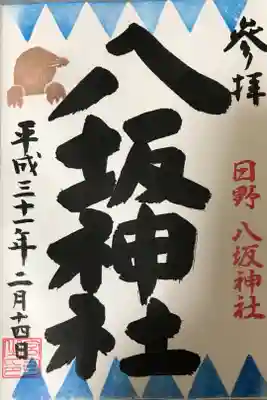 参拝
日野 八坂神社
八坂神社
平成三十一年二月十四日